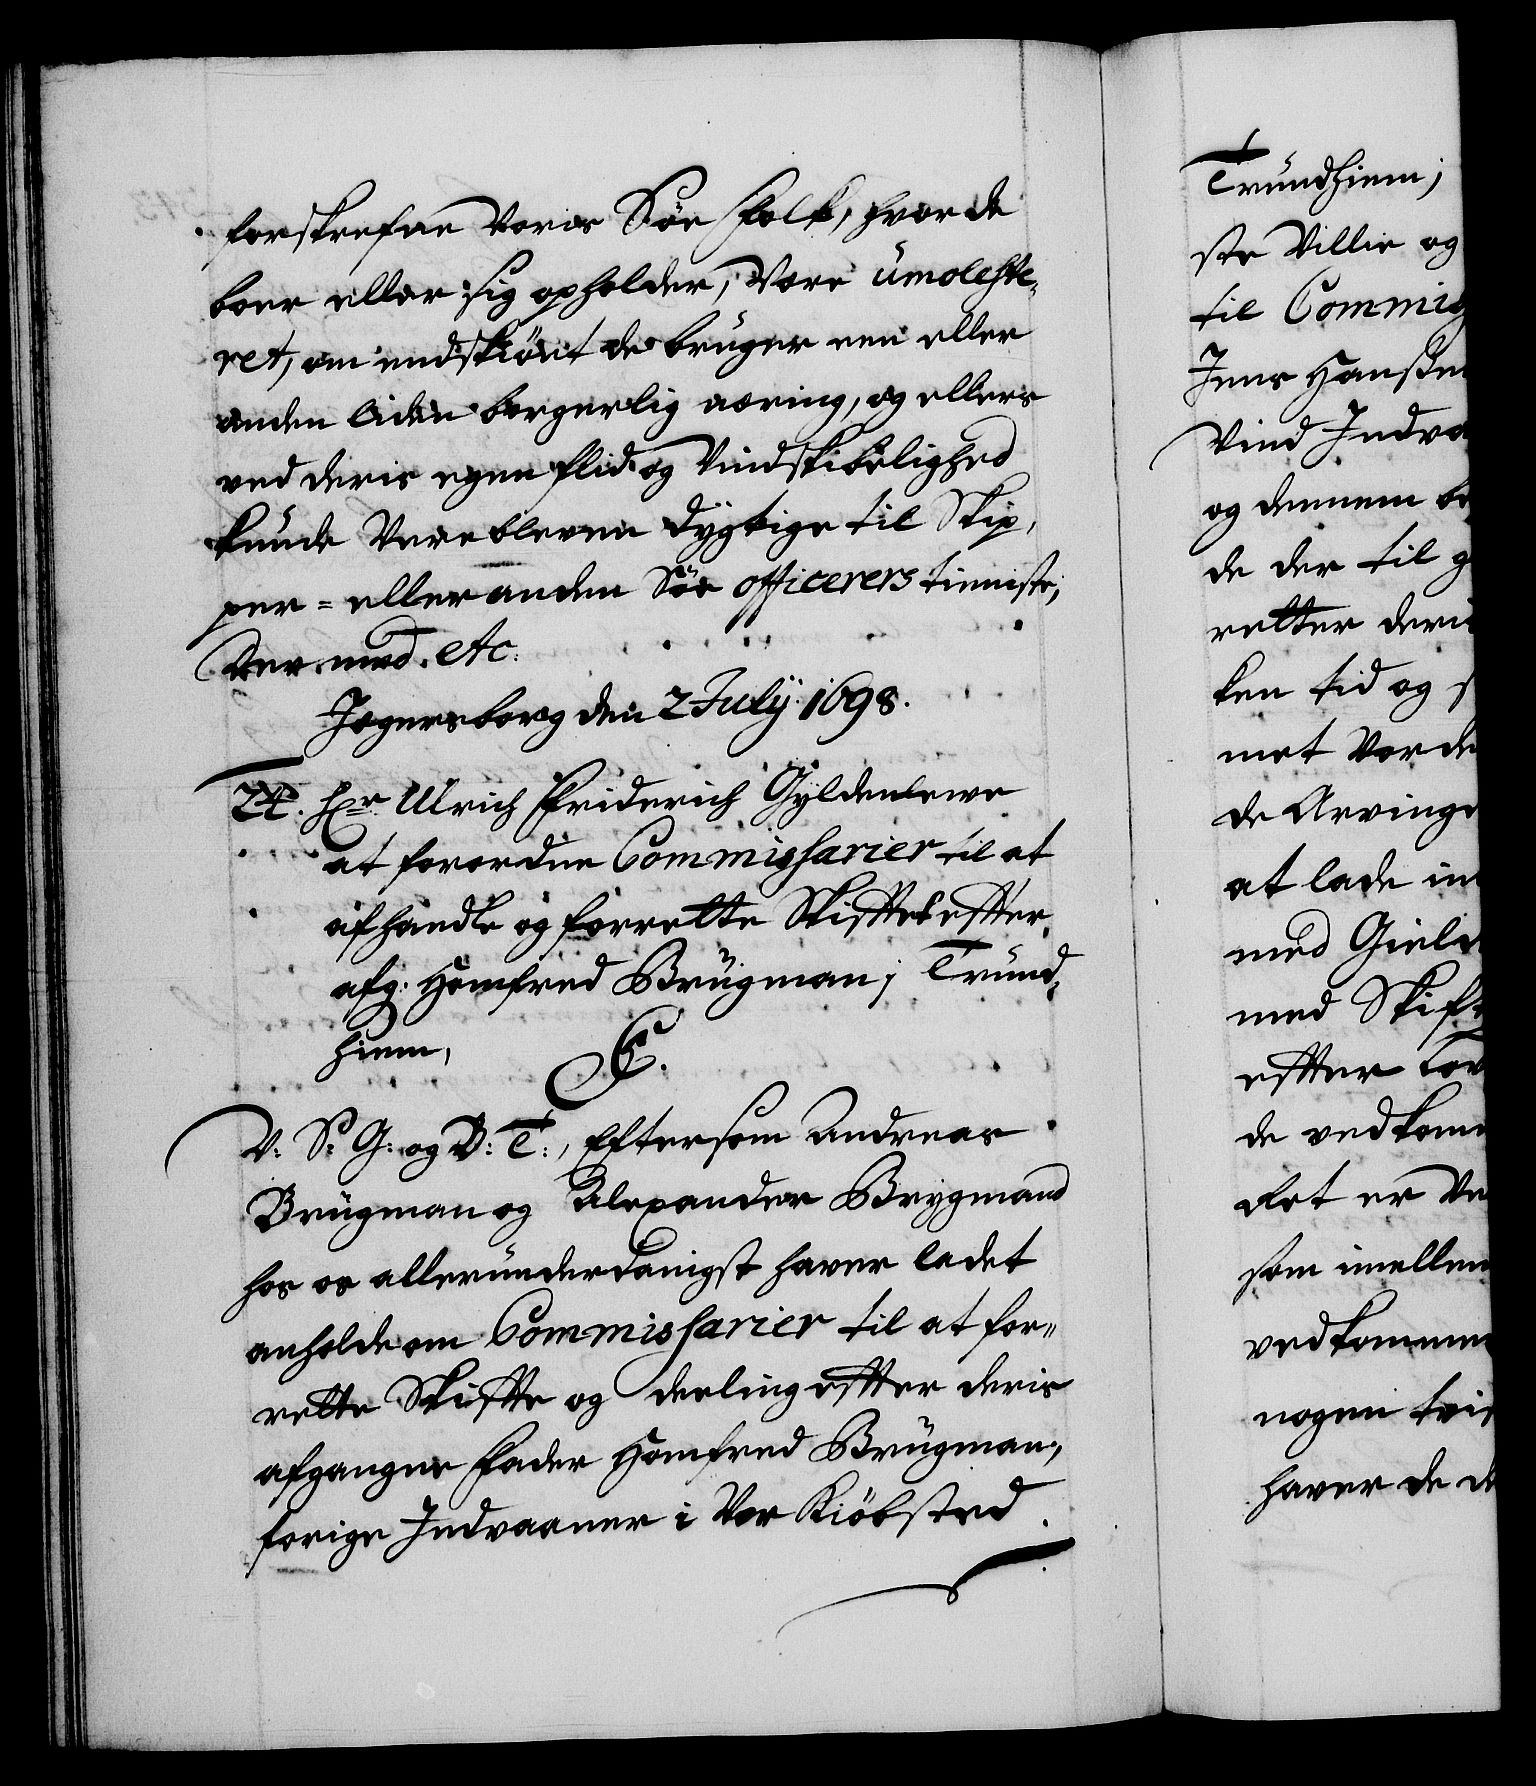 forskrefne Voris Söe folk, hvor de
boer eller sig opholder, Vere ümoleste,
ret, om endskiönt de brüger een eller
anden liden borgerlig næring, og ellers
ved deris egen flid og Vindskibelighed
kunde Vere bleven dygtige til Skip,
per= eller anden Söe officerers tieniste,
Der med. etc:
Jegersborg den 2 Julÿ. 1698.
Hr Ulrich Friderich Gyldenlewe
at forordne Commissarier til at
afhandle og forrette Skifftet effter
afg: Homfred Brügman j Tründ,
hiem,
C5.
V: S: G: og B: T:, Eftersom Andreas
Brügman og Alexander Brygmand
hos os alleründerdanigst haver ladet
anholde om Commissarier til at for„
rette Skiffte og deeling effter deris
afgangne fader Homfred Brügman,
forige Indvaaner i Vor Kiöbsted
Tründhiem j
ste Villie og
til Commis
Jens Hansen
Vind Indva
og dennem be
de der til g
retter deri
ken tid og s
met Vorde
de Arvinge
at lade in
med Gield
med Skift
effter Lov
de vedkom
det er Ve
som imellem
vedkommen
nogen tvis
haver de d